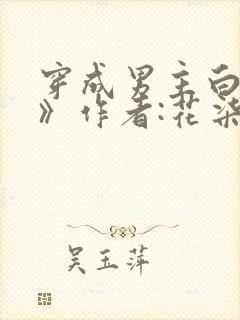 穿成男主白
》作者:花柒
吴玉萍